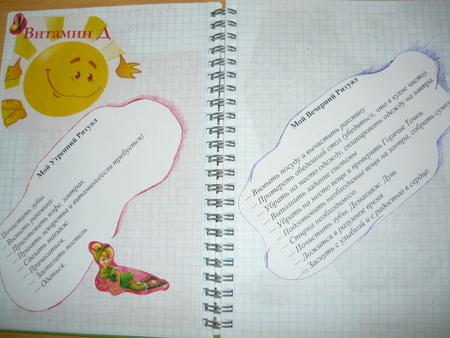 Витамин Д
Мой Утренний Ритуал
Почистить зубы.
— Вымыть раковину.
— Приготовить кофе, завтрак.
— Принять лекарства и витамины(если требуется)
— Сделать макияж.
— Причесаться.
— Застелить постель.
Одеться.
Мой Вечерний Ритуал
— Вымыть посуду и вычистить раковину.
— Протереть обеденный стол (убедиться, что в кухне чисто).
— Убрать на место одежду, спланировать одежду на завтра.
— Выполнить задание системы
— Убрать на место вещи и проверить Горячие Точки.
— Подготовить необходимые вещи на завтра, собрать сумку
— Стирка необходимого.
— Почистить зубы. Демакияж. Душ.
— Ложится в разумное время.
— Заснуть с улыбкой и с радостью в сердце.